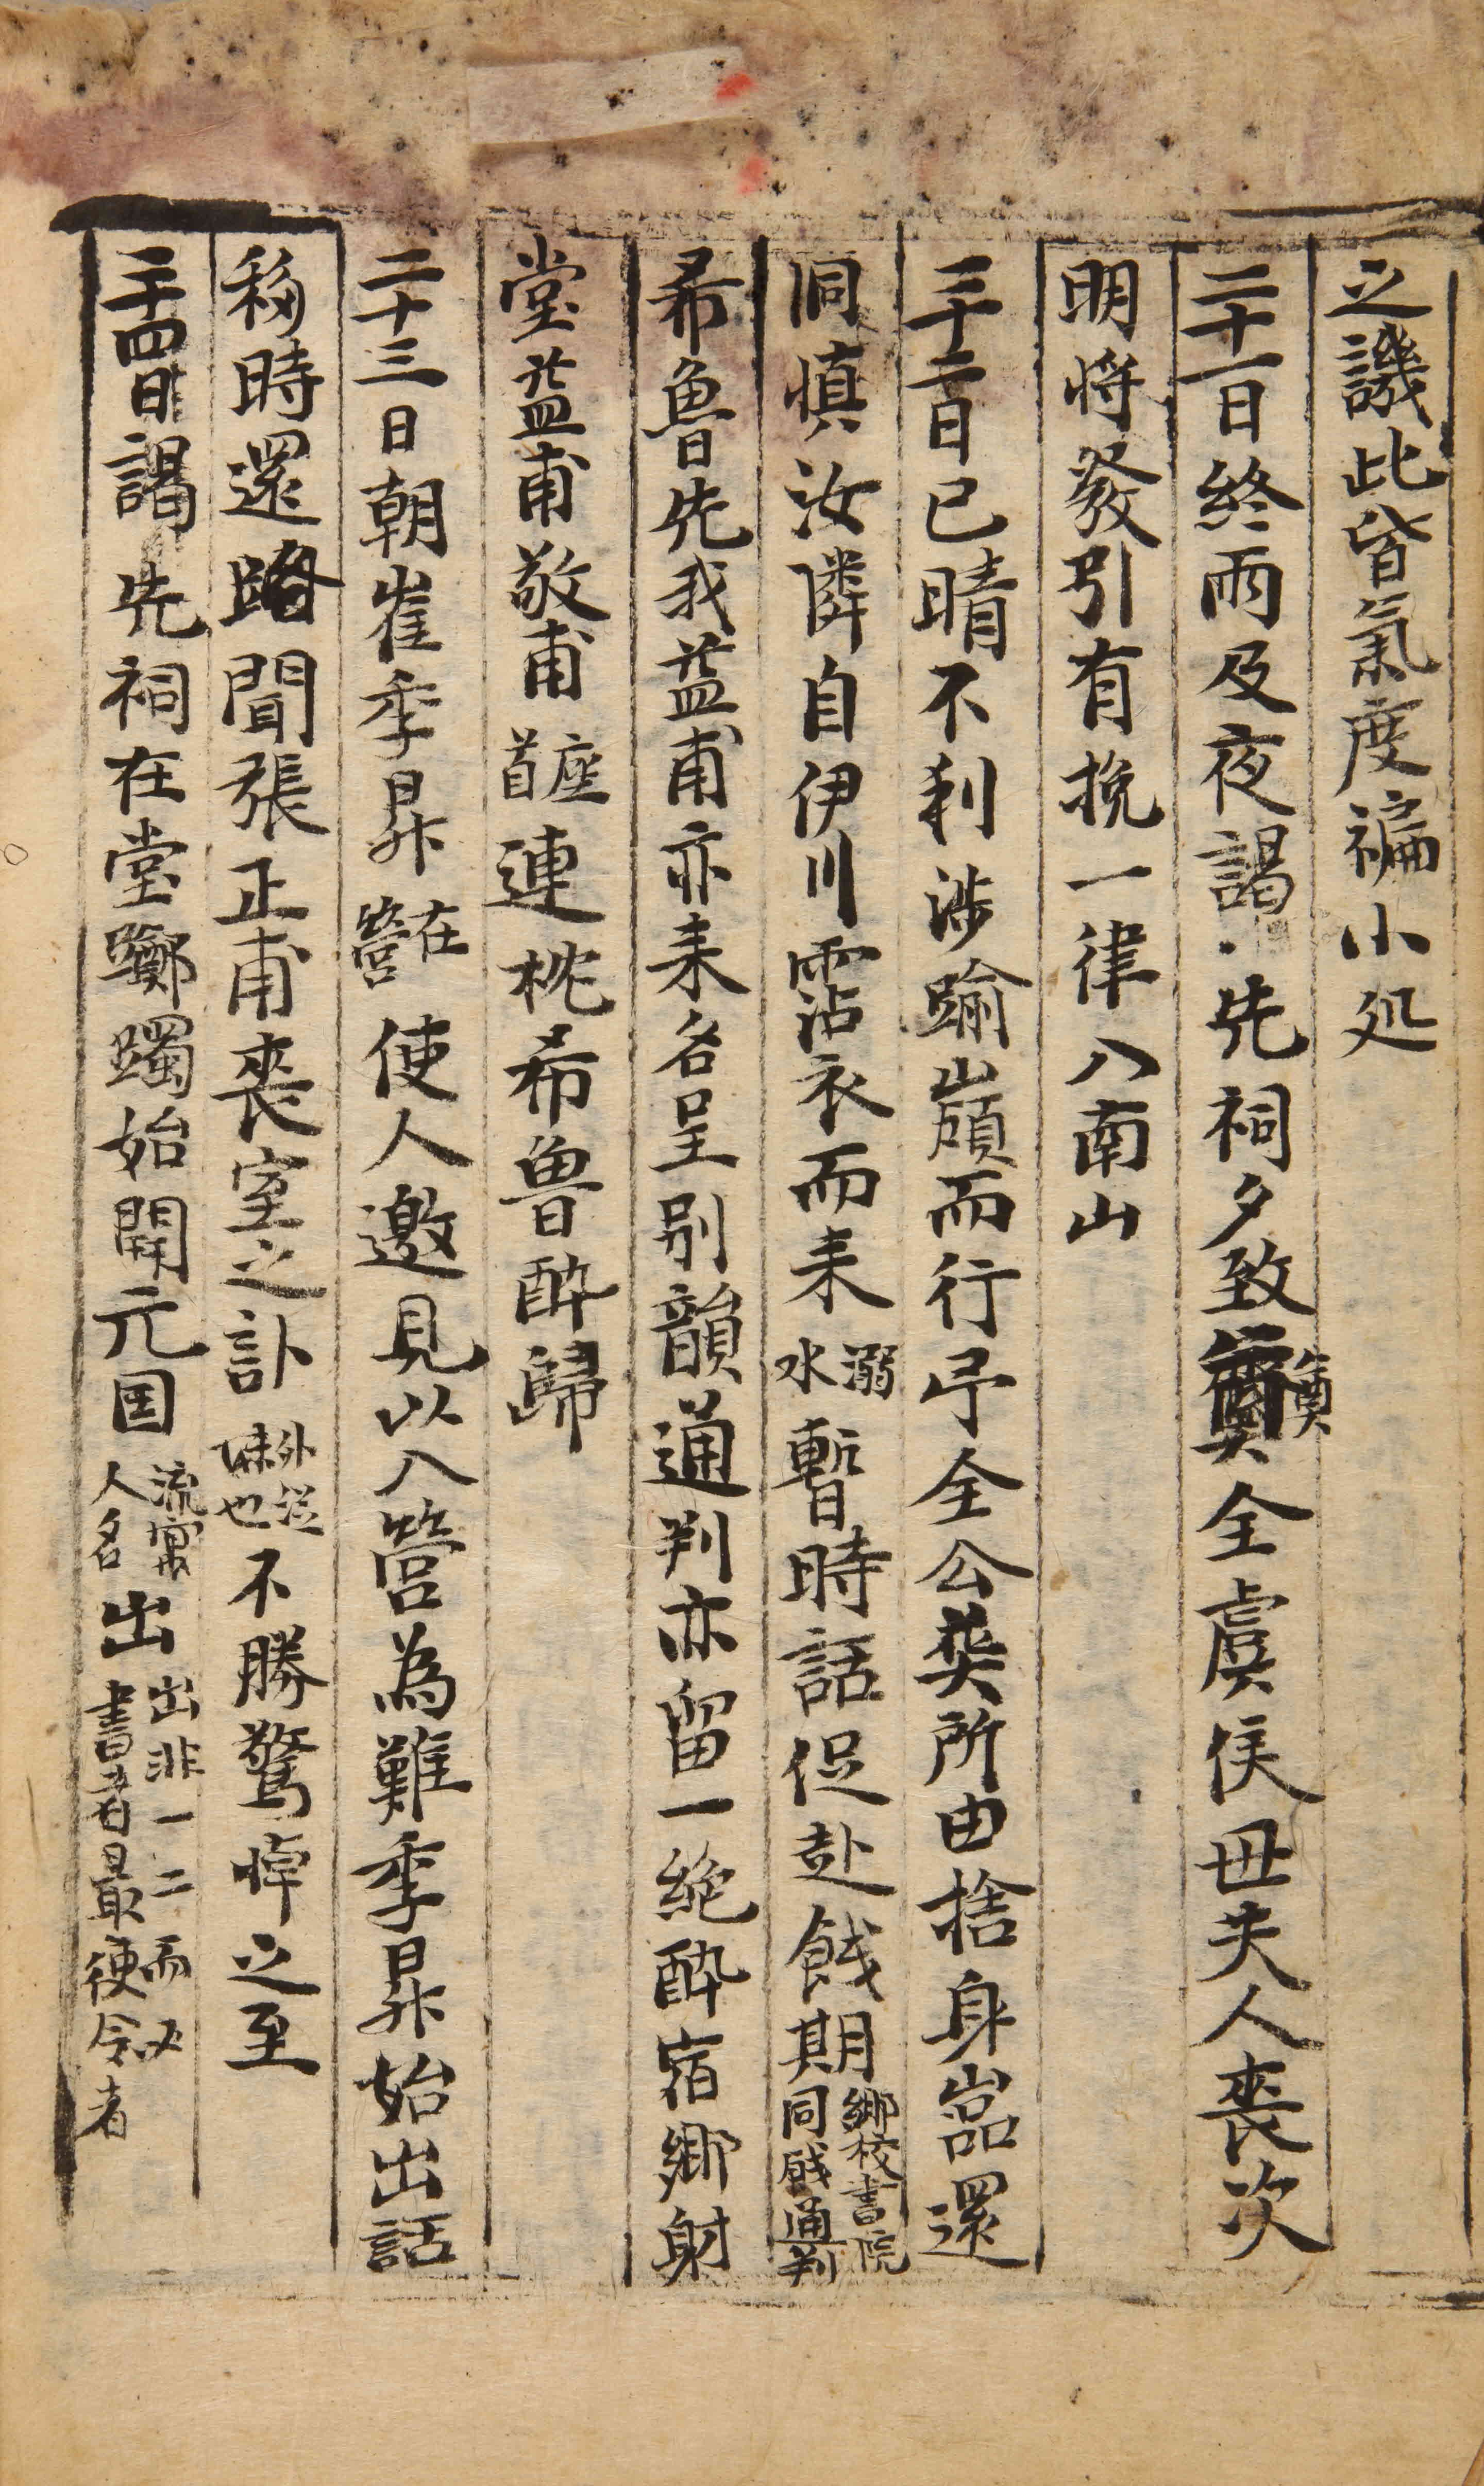 之譏此皆氣度褊小処
二十一日終雨及夜謁先祠夕致奠全虞侯毋夫人喪次
明將發引有挽一律八南山
二十二日已晴不利涉踰巓而行弔全公葬所由捨身嵓還
洞慎汝隣自伊川霑衣而来溺水暫時話促赴餞期鄉校書院同餞通判
希魯先我盆甫亦来各呈別韻通判亦留一絶醉宿鄉射
堂盆甫敬甫座首連枕希魯醉歸
二十三日朝崔季昇在營使人邀見以入營為難季昇始出話
移時還路聞張正甫喪室之訃外從妹也不勝驚悼之至
二十四日謁先祠在堂躑躅始開元国流寓人名出出非一二而必書者最便令者